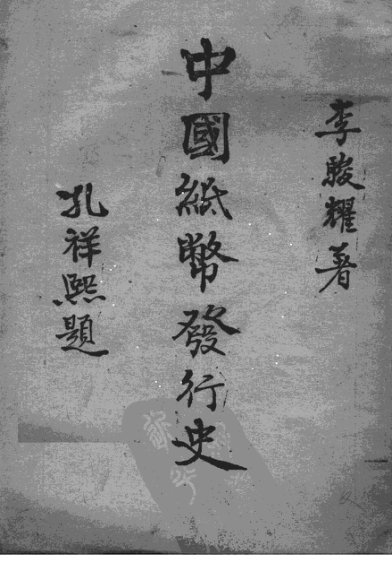 李駿耀著
中國紙幣發行史
孔祥熙題